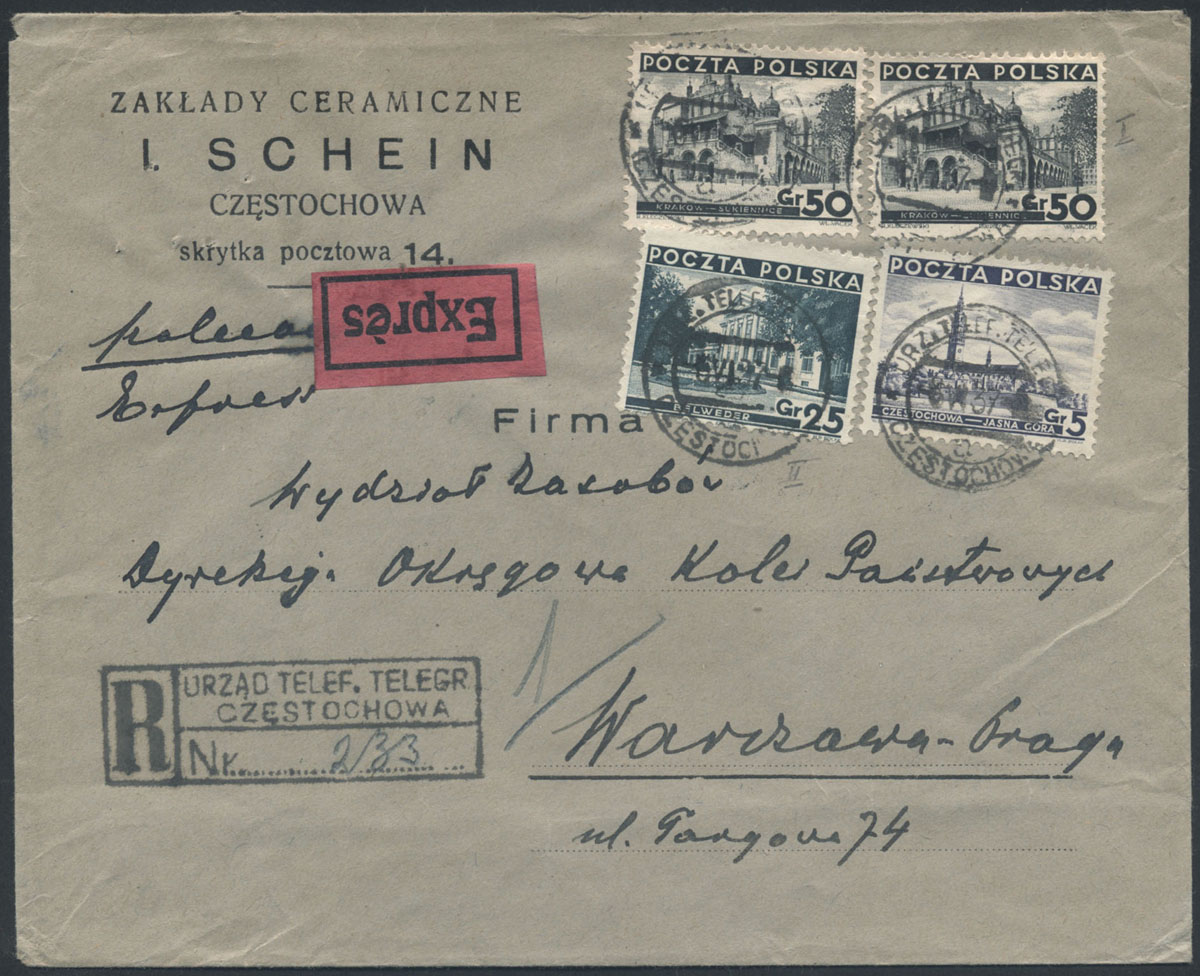 ZAKŁADY CERAMICZNE
I. SCHEIN
CZĘSTOCHOWA
skrytka pocztowa 14.
Exprès
Express
POCZTA POLSKA
KRAKÓW — SUKIENNICE
Gr 50
POCZTA POLSKA
KRAKÓW — SUKIENNICE
Gr 50
I
POCZTA POLSKA
BELWEDER
Gr 25
POCZTA POLSKA
CZĘSTOCHOWA — JASNA GÓRA
Gr 5
URZ. TELEF. TELEGR.
CZĘSTOCHOWA
II
Firma
Wydział Zasobów
Dyrekcja Okręgowa Kolei Państwowych
R
URZĄD TELEF. TELEGR.
CZĘSTOCHOWA
Nr. 233
Warszawa-Praga
ul. Targowa 74